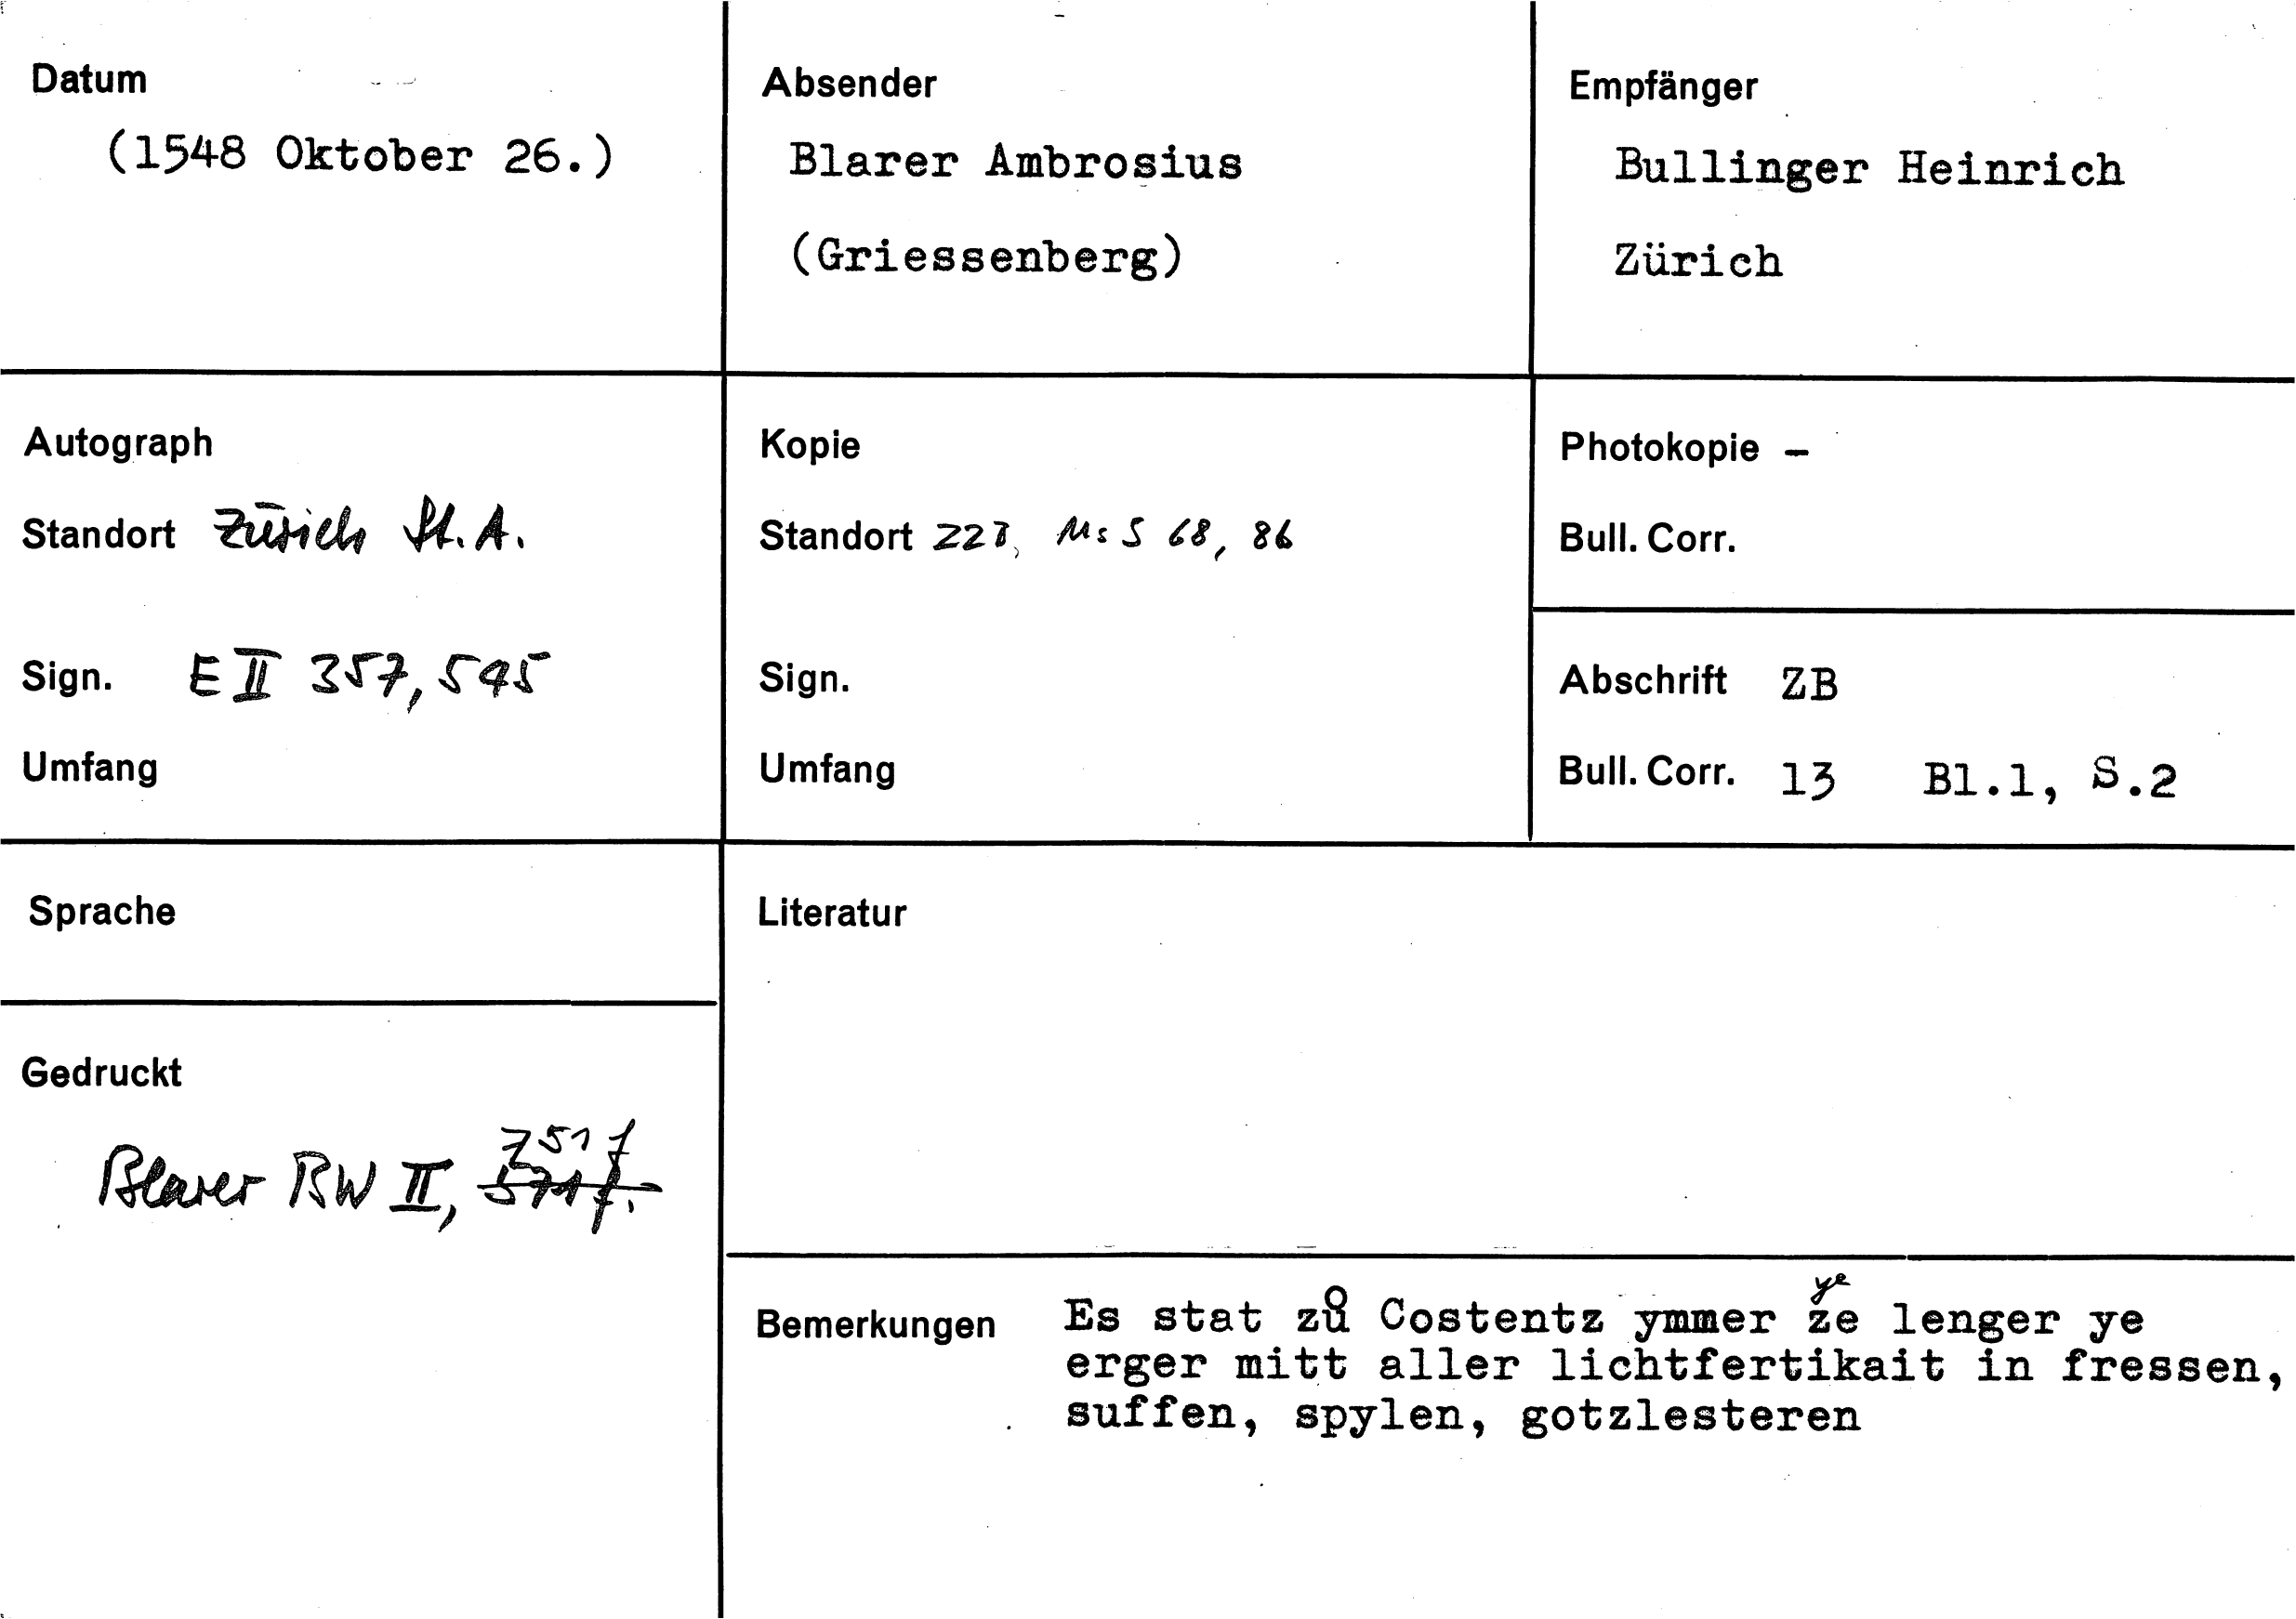 Datum
(1548 Oktober 26.)
Absender
Blarer Ambrosius
(Griessenberg)
Empfänger
Bullinger Heinrich
Zürich
Autograph
Standort Zürich St. A.
Sign. E II 357, 545
Umfang
Kopie
Standort ZZB, Ms S 68, 86
Sign.
Umfang
Photokopie –
Bull. Corr.
Abschrift ZB
Bull. Corr. 13 Bl.1, S.2
Sprache
Gedruckt
751 f
Blarer BW II, 571 f.
Literatur
ye
Bemerkungen Es stat zů Costentz ymmer ze lenger ye
erger mitt aller lichtfertikait in fressen,
suffen, spylen, gotzlesteren